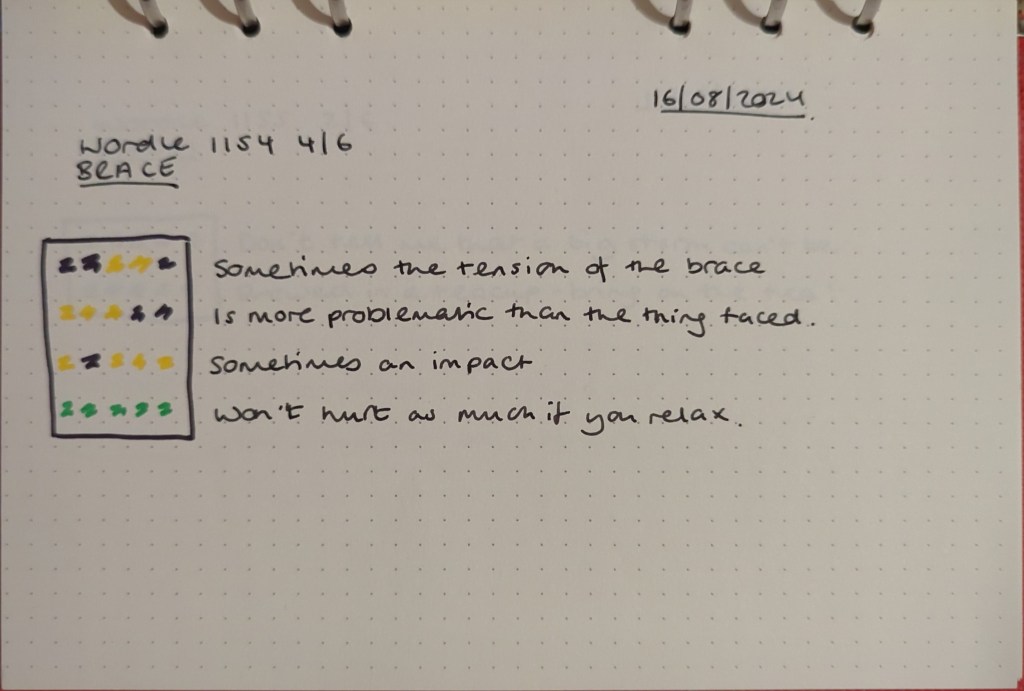 16/08/2024
Wordle 1154 4/6
BRACE
Sometimes the tension of the brace
Is more problematic than the thing faced.
Sometimes an impact
Won't hurt as much if you relax.